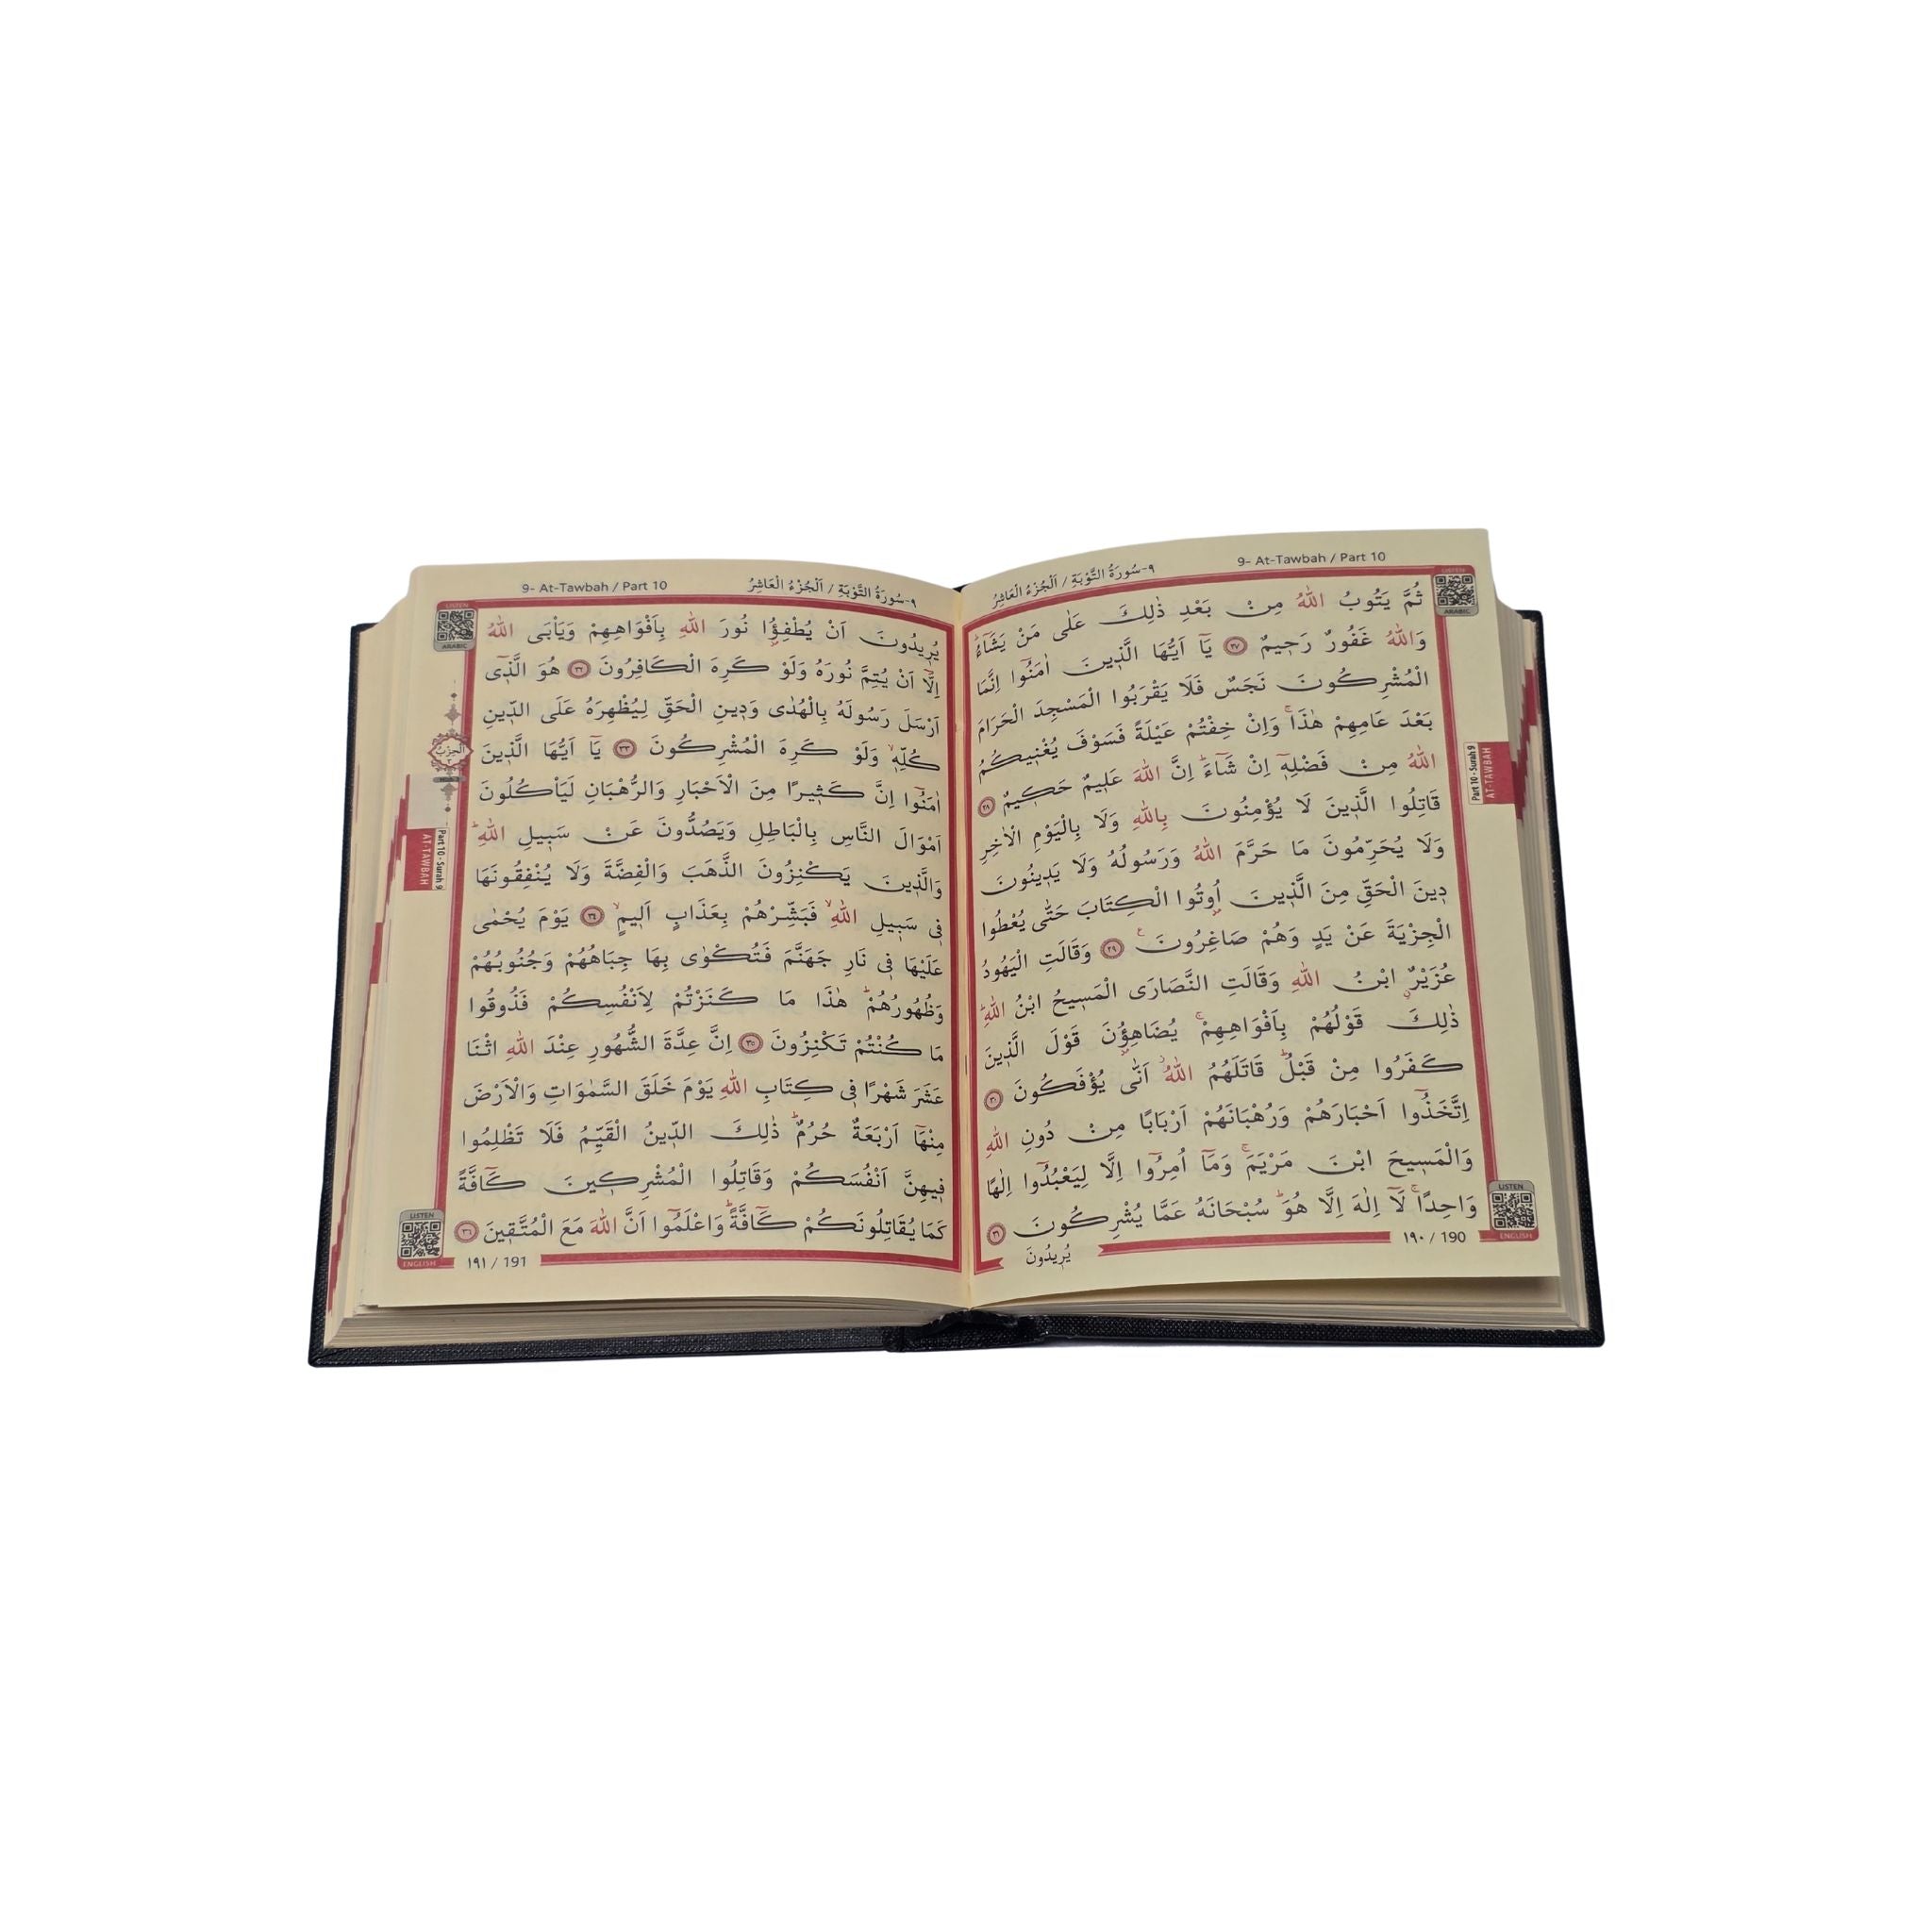 9- At-Tawbah / Part 10
٩-سُورَةُ التَّوْبَةِ / اَلْجُزْءُ الْعَاشِرُ
LISTEN
ARABIC
ثُمَّ يَتُوبُ اللّٰهُ مِنْ بَعْدِ ذٰلِكَ عَلٰى مَنْ يَشَٓاءُۜ
وَاللّٰهُ غَفُورٌ رَح۪يمٌ ﴿٢٧﴾ يَٓا اَيُّهَا الَّذ۪ينَ اٰمَنُٓوا اِنَّمَا
الْمُشْرِكُونَ نَجَسٌ فَلَا يَقْرَبُوا الْمَسْجِدَ الْحَرَامَ
بَعْدَ عَامِهِمْ هٰذَاۚ وَاِنْ خِفْتُمْ عَيْلَةً فَسَوْفَ يُغْن۪يكُمُ
اللّٰهُ مِنْ فَضْلِه۪ٓ اِنْ شَٓاءَۜ اِنَّ اللّٰهَ عَل۪يمٌ حَك۪يمٌ ﴿٢٨﴾
قَاتِلُوا الَّذ۪ينَ لَا يُؤْمِنُونَ بِاللّٰهِ وَلَا بِالْيَوْمِ الْاٰخِرِ
وَلَا يُحَرِّمُونَ مَا حَرَّمَ اللّٰهُ وَرَسُولُهُ وَلَا يَد۪ينُونَ
د۪ينَ الْحَقِّ مِنَ الَّذ۪ينَ اُو۫تُوا الْكِتَابَ حَتّٰى يُعْطُوا
الْجِزْيَةَ عَنْ يَدٍ وَهُمْ صَاغِرُونَ۟ ﴿٢٩﴾ وَقَالَتِ الْيَهُودُ
عُزَيْرٌۨ ابْنُ اللّٰهِ وَقَالَتِ النَّصَارَى الْمَس۪يحُ ابْنُ اللّٰهِۜ
ذٰلِكَ قَوْلُهُمْ بِاَفْوَاهِهِمْۚ يُضَاهِؤُ۫نَ قَوْلَ الَّذ۪ينَ
كَفَرُوا مِنْ قَبْلُۜ قَاتَلَهُمُ اللّٰهُۘ اَنّٰى يُؤْفَكُونَ ﴿٣٠﴾
اِتَّخَذُٓوا اَحْبَارَهُمْ وَرُهْبَانَهُمْ اَرْبَابًا مِنْ دُونِ اللّٰهِ
وَالْمَس۪يحَ ابْنَ مَرْيَمَۚ وَمَٓا اُمِرُٓوا اِلَّا لِيَعْبُدُٓوا اِلٰهًا
وَاحِدًاۚ لَٓا اِلٰهَ اِلَّا هُوَۜ سُبْحَانَهُ عَمَّا يُشْرِكُونَ ﴿٣١﴾
يُر۪يدُونَ
١٩٠ / 190
LISTEN
ENGLISH
Part 10 - Surah 9
AT-TAWBAH
9- At-Tawbah / Part 10
٩-سُورَةُ التَّوْبَةِ / اَلْجُزْءُ الْعَاشِرُ
LISTEN
ARABIC
يُر۪يدُونَ اَنْ يُطْفِؤُ۫ا نُورَ اللّٰهِ بِاَفْوَاهِهِمْ وَيَأْبَى اللّٰهُ
اِلَّٓا اَنْ يُتِمَّ نُورَهُ وَلَوْ كَرِهَ الْكَافِرُونَ ﴿٣٢﴾ هُوَ الَّذ۪ٓى
اَرْسَلَ رَسُولَهُ بِالْهُدٰى وَد۪ينِ الْحَقِّ لِيُظْهِرَهُ عَلَى الدّ۪ينِ
كُلِّه۪ۙ وَلَوْ كَرِهَ الْمُشْرِكُونَ ﴿٣٣﴾ يَٓا اَيُّهَا الَّذ۪ينَ
اٰمَنُٓوا اِنَّ كَث۪يرًا مِنَ الْاَحْبَارِ وَالرُّهْبَانِ لَيَأْكُلُونَ
اَمْوَالَ النَّاسِ بِالْبَاطِلِ وَيَصُدُّونَ عَنْ سَب۪يلِ اللّٰهِۜ
وَالَّذ۪ينَ يَكْنِزُونَ الذَّهَبَ وَالْفِضَّةَ وَلَا يُنْفِقُونَهَا
ف۪ى سَب۪يلِ اللّٰهِۙ فَبَشِّرْهُمْ بِعَذَابٍ اَل۪يمٍۙ ﴿٣٤﴾ يَوْمَ يُحْمٰى
عَلَيْهَا ف۪ى نَارِ جَهَنَّمَ فَتُكْوٰى بِهَا جِبَاهُهُمْ وَجُنُوبُهُمْ
وَظُهُورُهُمْۜ هٰذَا مَا كَنَزْتُمْ لِاَنْفُسِكُمْ فَذُوقُوا
مَا كُنْتُمْ تَكْنِزُونَ ﴿٣٥﴾ اِنَّ عِدَّةَ الشُّهُورِ عِنْدَ اللّٰهِ اثْنَا
عَشَرَ شَهْرًا ف۪ى كِتَابِ اللّٰهِ يَوْمَ خَلَقَ السَّمٰوَاتِ وَالْاَرْضَ
مِنْهَٓا اَرْبَعَةٌ حُرُمٌۜ ذٰلِكَ الدّ۪ينُ الْقَيِّمُ فَلَا تَظْلِمُوا
ف۪يهِنَّ اَنْفُسَكُمْ وَقَاتِلُوا الْمُشْرِك۪ينَ كَٓافَّةً
كَمَا يُقَاتِلُونَكُمْ كَٓافَّةًۜ وَاعْلَمُٓوا اَنَّ اللّٰهَ مَعَ الْمُتَّق۪ينَ ﴿٣٦﴾
١٩١ / 191
LISTEN
ENGLISH
اَلْحِزْبُ
Part 10 - Surah 9
AT-TAWBAH